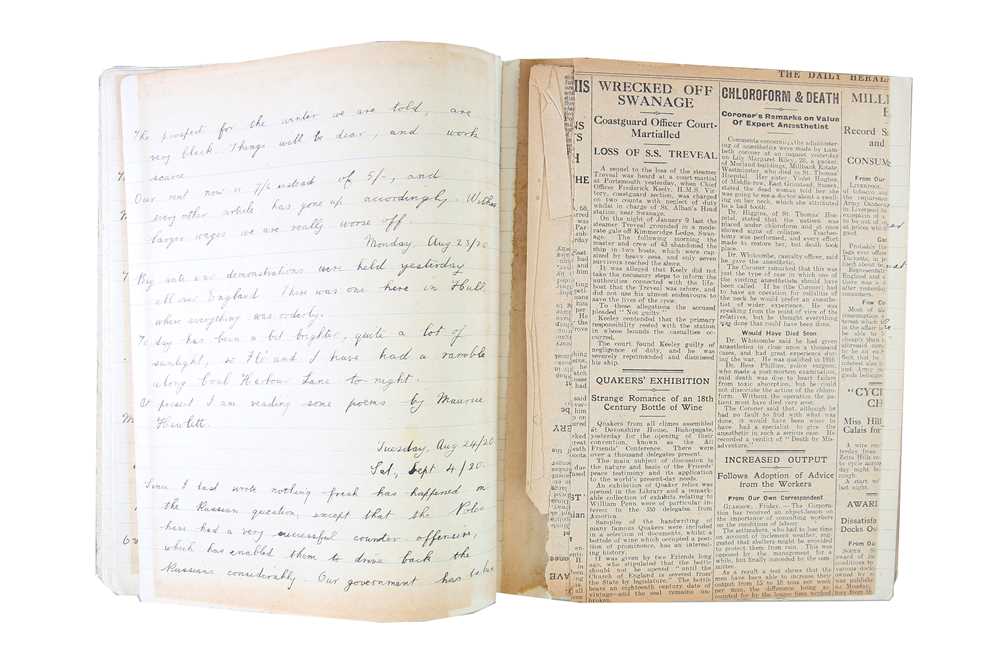 The prospect for the winter we are told, are
very black. Things will be dear, and work
scarce.
Our rent now is 7/6 instead of 5/-, and
every other article has gone up accordingly. With
larger wages we are really worse off
Monday, Aug 23/20.
demonstrations were held yesterday
all over England. There was one here in Hull
when everything was orderly.
To day has been a bit brighter, quite a lot of
sunlight, so Flo and I have had a ramble
along Lane to-night.
At present I am reading some poems by Maurice
Hewlett.
Tuesday, Aug 24/20
Sat, Sept 4/20.
Since I last wrote nothing fresh has happened on
the Russian question, except that the Poles
have had a very successful counter offensive,
which has enabled them to drive back the
Russians considerably. Our government has
THE DAILY HERAL
WRECKED OFF
SWANAGE
Coastguard Officer Court-
Martialled
LOSS OF S.S. TREVEAL
A sequel to the loss of the steamer
Treveal was heard at a court martial
at Portsmouth yesterday, when Chief
Officer Frederick Keely, H.M.S. Victory,
coastguard section, was charged
on two counts with neglect of duty
while in charge of St. Alban's Head
station, near Swanage.
On the night of January 9 last the
steamer Treveal grounded in a moderate
gale off Kimmeridge Ledge, Swanage.
The following morning the
master and crew of 43 abandoned the
ship in two boats, which were capsized
by heavy seas, and only seven
survivors reached the shore.
It was alleged that Keely did not
take the necessary steps to inform the
authorities connected with the lifeboat
that the Treveal was ashore, and
did not use his utmost endeavours to
save the lives of the crew.
To these allegations the accused
pleaded "Not guilty."
Keeley contended that the primary
responsibility rested with the station
in whose bounds the casualties occurred.
The court found Keely guilty of
negligence of duty, and he was
severely reprimanded and dismissed
his ship.
QUAKERS' EXHIBITION
Strange Romance of an 18th
Century Bottle of Wine
Quakers from all climes assembled
at Devonshire House, Bishopsgate,
yesterday for the opening of their
convention, known as the All
Friends' Conference. There were
over a thousand delegates present.
The main subject of discussion is
the nature and basis of the Friends'
peace testimony and its application
to the world's present-day needs.
An exhibition of Quaker relics was
opened in the Library and a remarkable
collection of exhibits relating to
William Penn were of particular interest
to the 350 delegates from
America.
Samples of the handwriting of
many famous Quakers were included
in a selection of documents, whilst a
bottle of wine which occupied a position
of prominence, has an interesting
history.
It was given by two Friends long
ago, who stipulated that the bottle
should not be opened "until the
Church of England is severed from
the State by legislature." The bottle
bears an eighteenth century date of
vintage and the seal remains unbroken.
CHLOROFORM & DEATH
Coroner's Remarks on Value
Of Expert Anæsthetist
Comments concerning the administering
of anæsthetics were made by Lambeth
coroner at an inquest yesterday
on Lily Margaret Riley, 25, a packer,
of Morland-buildings, Millbank Estate,
Westminster, who died in St. Thomas'
Hospital. Her sister, Violet Hughes,
of Middle-row, East Grinstead, Sussex,
stated the dead woman told her she
was going to see a doctor about a swelling
on her neck, which she attributed
to a bad tooth.
Dr. Higgins, of St. Thomas' Hospital,
stated that the patient was
placed under chloroform and at once
showed signs of collapse. Tracheotomy
was performed, and every effort
made to restore her, but death took
place.
Dr. Whitcombe, casualty officer, said
he gave the anæsthetic.
The Coroner remarked that this was
just the type of case in which one of
the visiting anæsthetists should have
been called. If he (the Coroner) had
to have an operation for cellulitis of
the neck he would prefer an anæsthetist
of wider experience. He was
speaking from the point of view of the
relatives, but he thought everything
was done that could have been done.
Would Have Died Soon
Dr. Whitcombe said he had given
anæsthetics in close upon a thousand
cases, and had great experience during
the war. He was qualified in 1916.
Dr. Bess Phillips, police surgeon,
who made a post-mortem examination,
said death was due to heart failure
from toxic absorption, but he could
not dissociate the action of the chloroform.
Without the operation the patient
must have died very soon.
The Coroner said that, although he
had no fault to find with what was
done, it would have been wiser to
have had a specialist to give the
anæsthetic in such a serious case. He
recorded a verdict of "Death by Misadventure."
INCREASED OUTPUT
Follows Adoption of Advice
from the Workers
From Our Own Correspondent
GLASGOW, Friday.—The Corporation
has received an object-lesson on
the importance of consulting workers
on the conditions of labour.
The slitmakers, who had to lose time
on account of inclement weather, suggested
that shelters might be provided
to protect them from rain. This was
opposed by the management for a
while, but finally conceded by the committee.
As a result a test shows that the
men have been able to increase their
output from 15 to 18 tons per week
per man, the difference being accounted
for by the longer time worked
MILLI
Record S
and
CONSUM
From Our
"CYC
CH
Miss Hill
Calais for
AWARI
Dissatisfa
Docks Ou